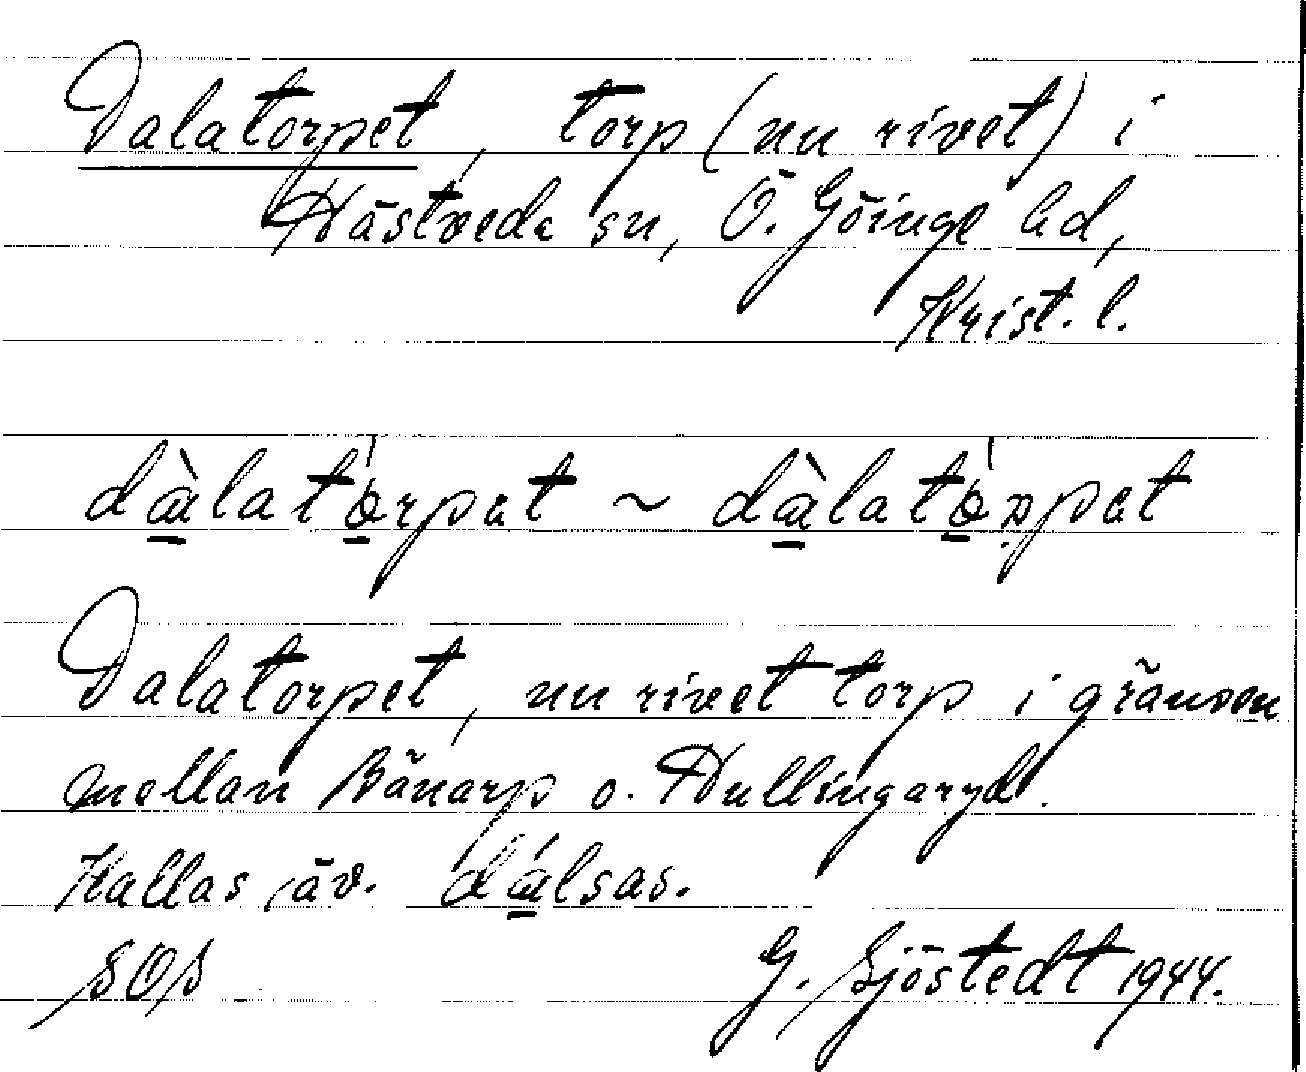 Dalatorpet, torp (nu rivet) i
Hästveda sn, Ö. Göinge hd,
Krist. l.
dàlatórpet ~ dàlatóppet
Dalatorpet, nu rivet torp i gränsen
mellan Bänarp o. Hullingaryd.
Kallas äv. dálsas.
SOS
G. Sjöstedt 1944.